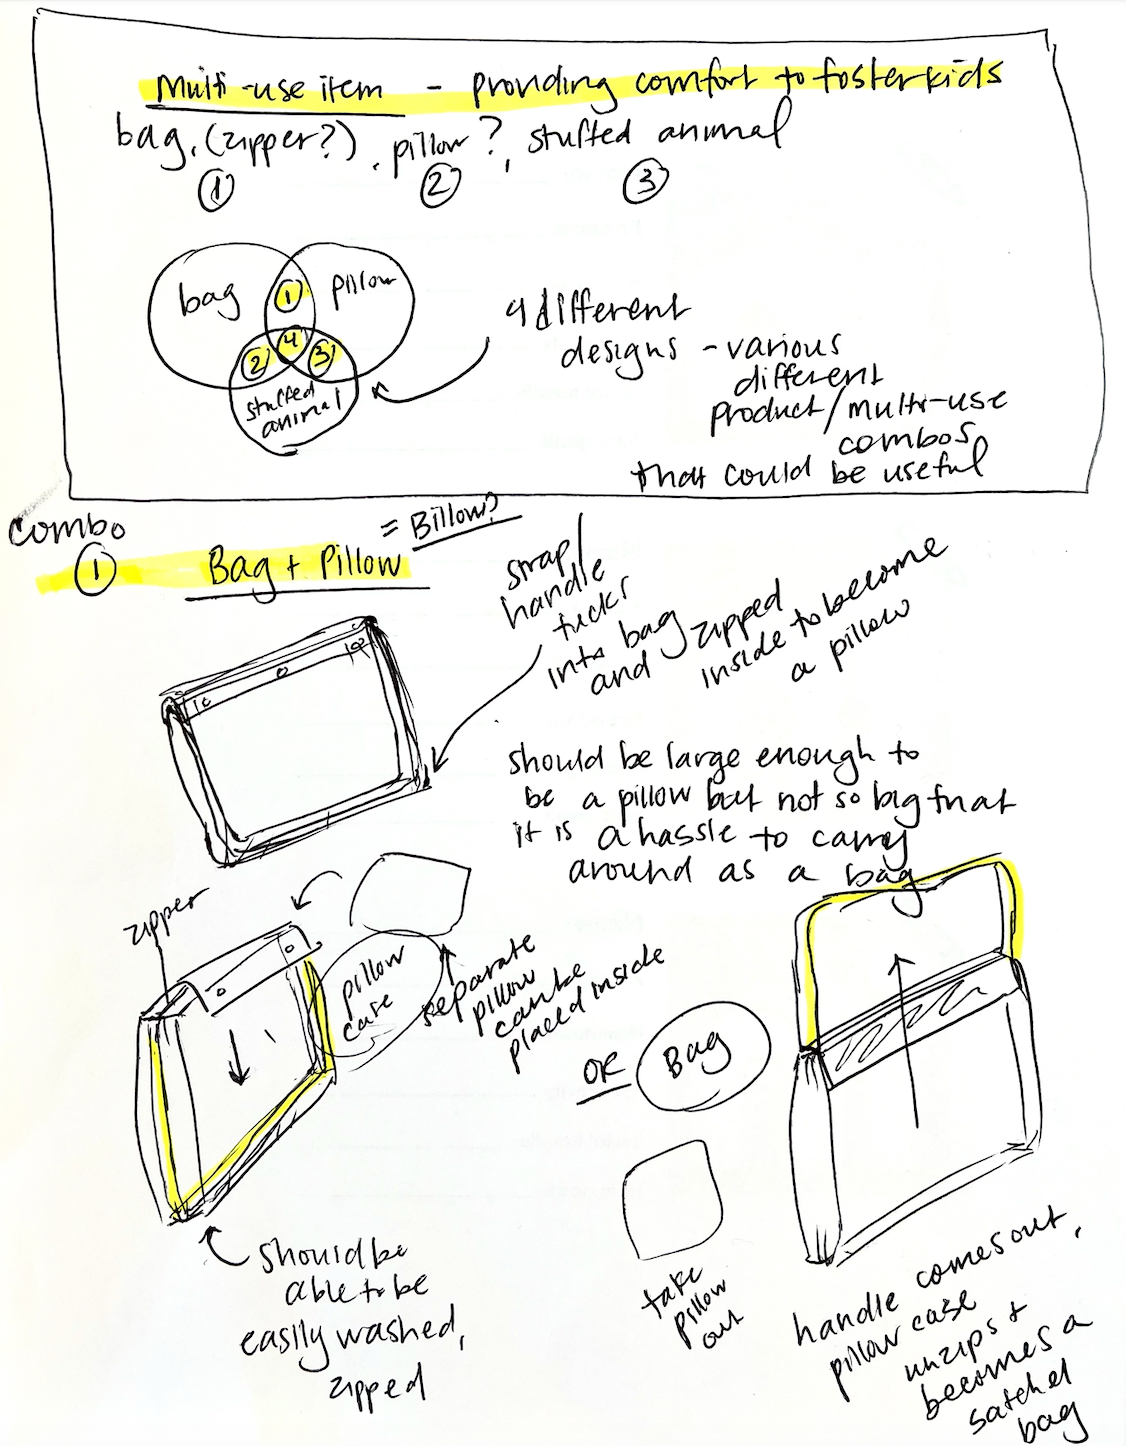 Multi-use item - providing comfort to foster kids
bag, (zipper?), pillow?, stuffed animal
① ② ③
bag ① pillow
② ④ ③
stuffed
animal
4 different
designs - various
different
product/multi-use
combos
that could be useful
combo
①
Bag + Pillow
= Billow?
strap/
handle
tucks
into bag
and zipped
inside to become
a pillow
should be large enough to
be a pillow but not so big that
it is a hassle to carry
around as a bag
zipper
pillow
case
separate
pillow
can be
placed inside
OR
Bag
should be
able to be
easily washed,
zipped
take
pillow
out
handle comes out,
pillow case
unzips +
becomes a
satchel
bag